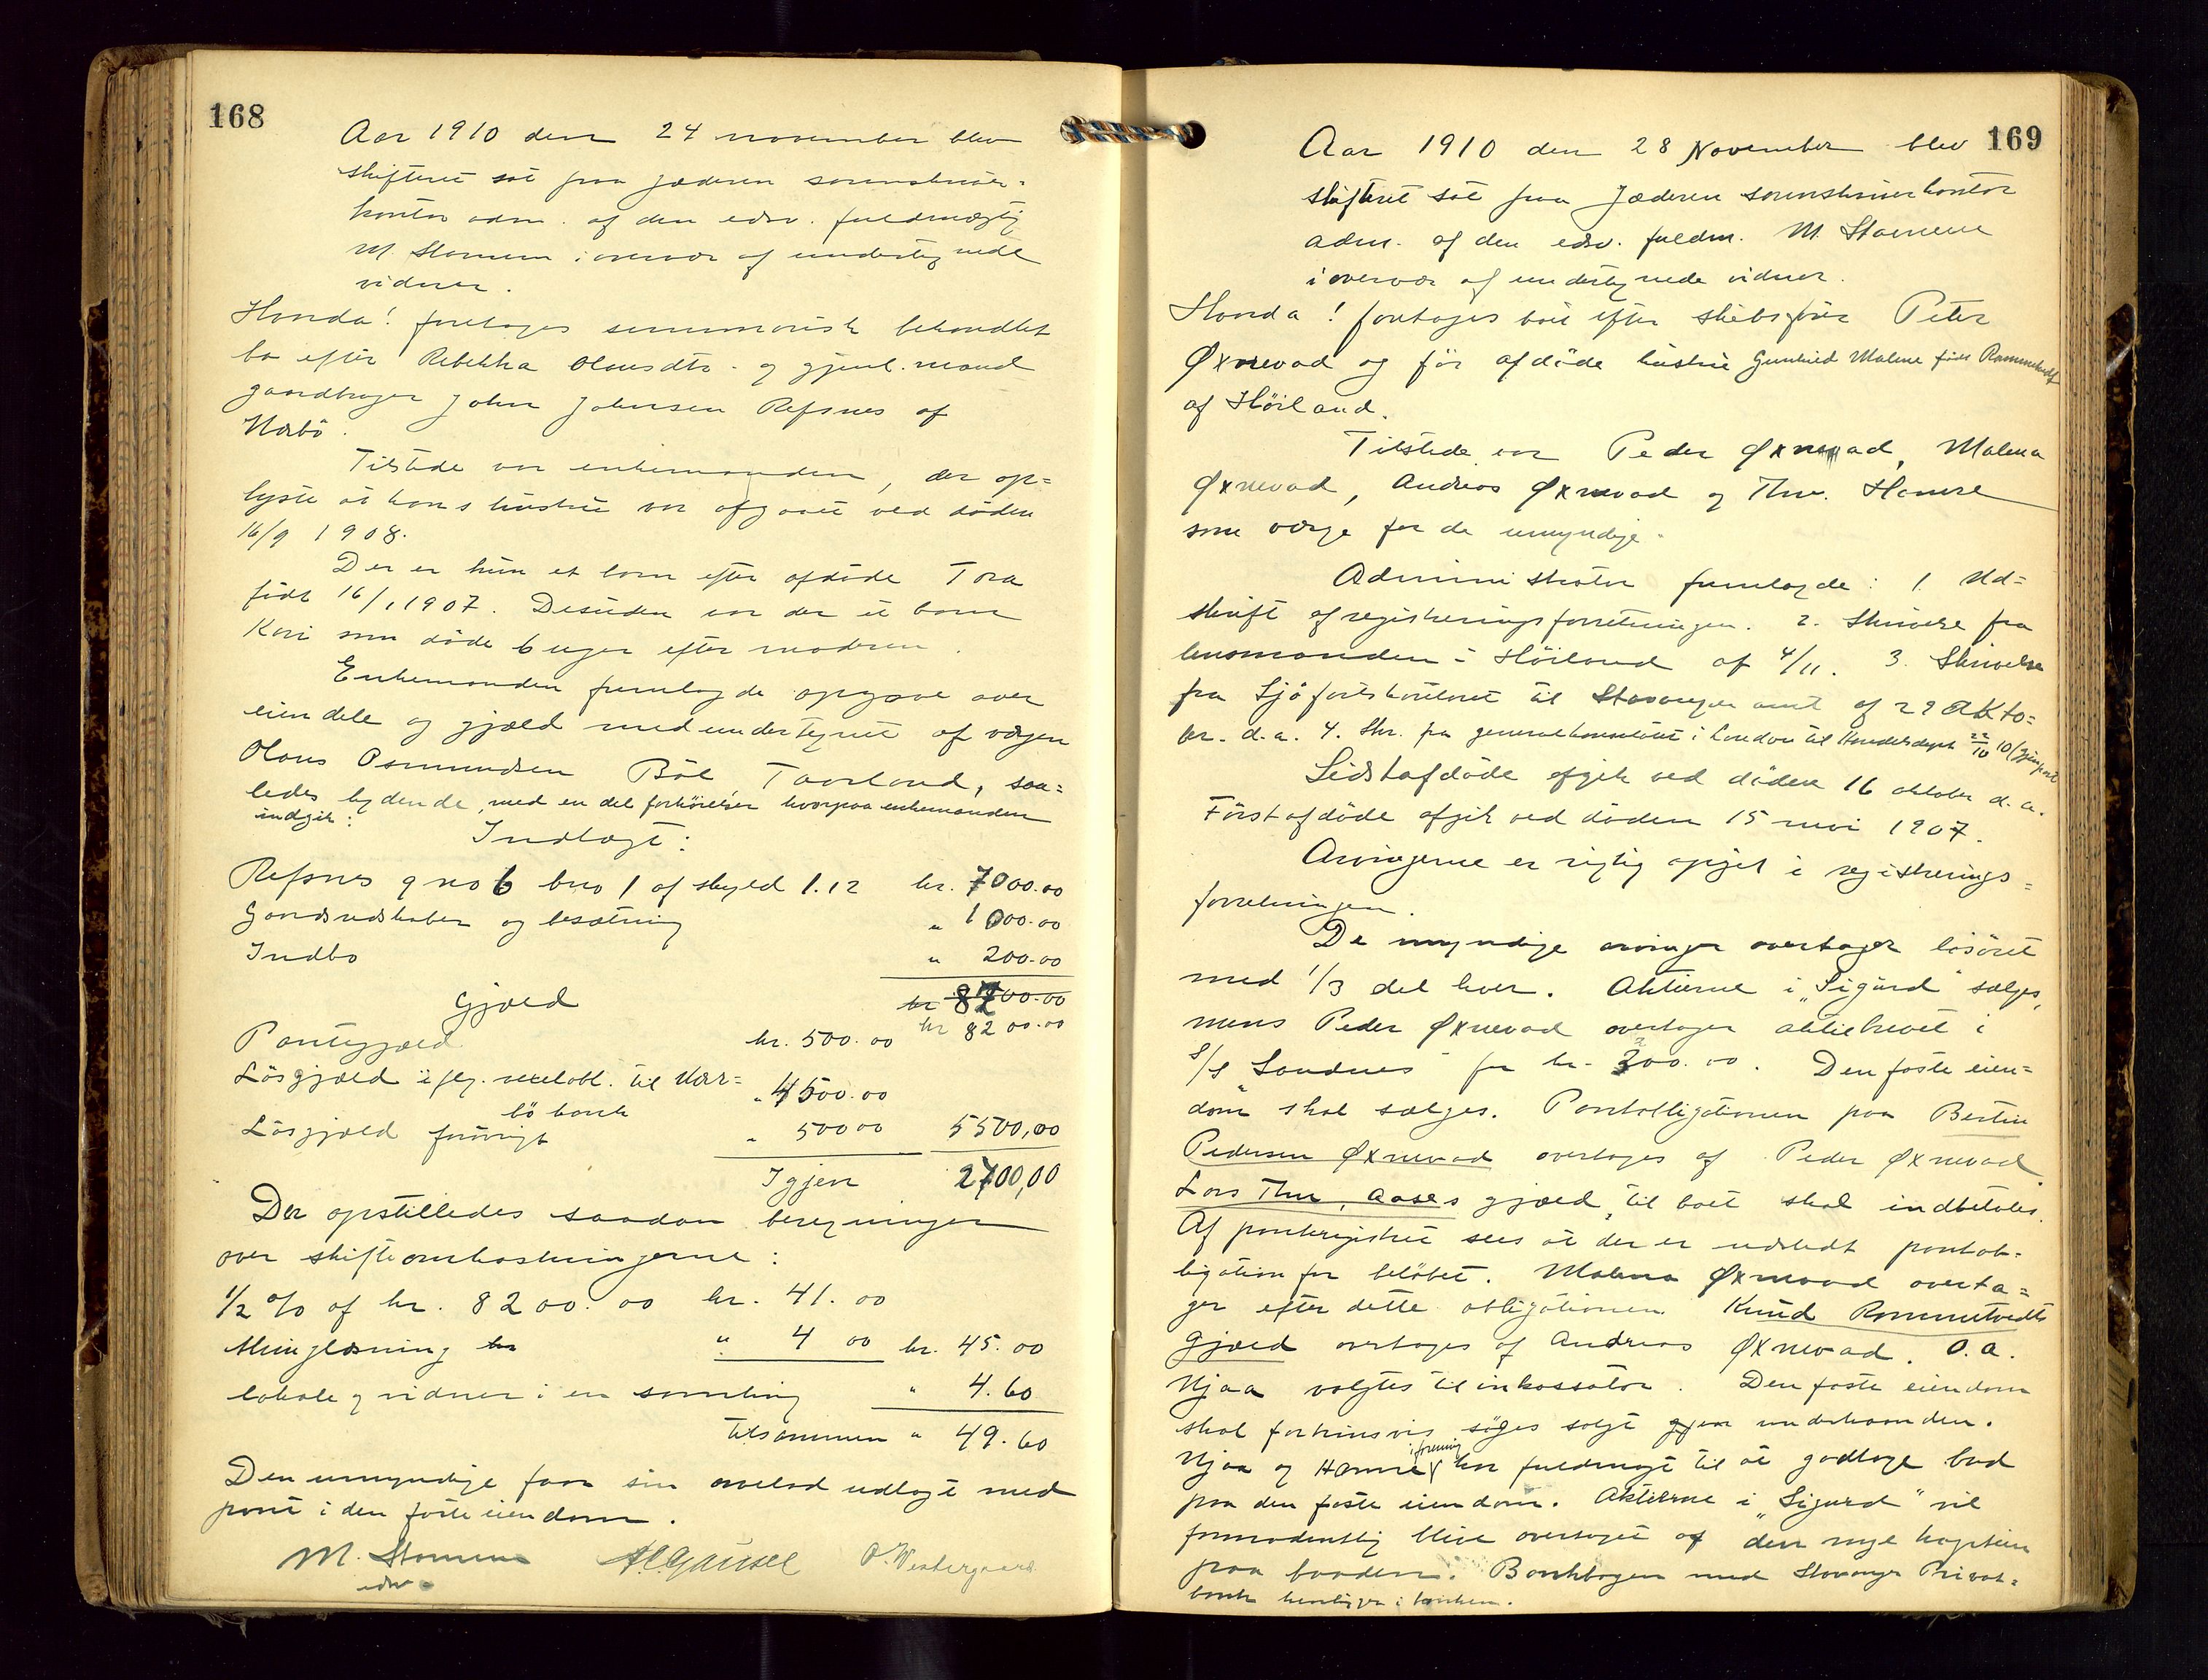 168
Aar 1910 den 24 november blev
skifteret sat paa Jæderen sorenskriver=
kontor adm. af den edsv. fuldmægtig
M. Stamnes i overvær af undertegnede
vidner.
Handa! foretoges summarisk behandlet
bo efter Rebekka Olausdtr. og gjenl. mand
gaardbruger John Johnsen Refsnes af
Nærbö.
Tilstede var enkemanden, der op=
lyste at hans hustru var afgaaet ved döden
16/9 1908.
Der er kun et barn efter afdöde Tora
födt 16/1 1907. Desuden var der et barn
Kari som döde 6 uger efter moderen.
Enkemanden fremlagde opgave over
eiendele og gjæld medundertegnet af vergen
Olaus Osmundsen Böe Taarland, saa=
ledes lydende, med en del forhöielser hvorpaa enkemanden
indgik:
Indtægt:
Refsnes gno 6 bno 1 af skyld 1.12 kr. 7000.00
Gaardsredskaber og besætning " 1000.00
Indbo " 200.00
kr 8700.00
Gjæld kr 8200.00
Pantegjæld kr. 500.00
Lösgjæld iflg. vexelobl. til Nær=
bö bank " 4500.00
Lösgjæld forövrigt " 500 00 5500,00
Igjen 2700,00
Der opstilledes saadan beregninger
over skifteomkostningerne:
1/2 % af kr. 8200.00 kr. 41.00
thinglæsning kr " 4 00 kr. 45.00
lokale og vidner i en samling " 4.60
tilsammen " 49.60
Den umyndige faar sin arvelod udlagt med
pant i den faste eiendom.
M. Stamnes
edsv
P. Westergaard
169
Aar 1910 den 28 November blev
skifteret sat paa Jæderen sorenskriverkontor
adm. af den edsv. fuldm. M. Stamnes
i overvær af undertegnede vidner.
Handa! foretoges boet efter skibsförer Peter
Øxnevad og för afdöde hustru Gunhild Malene föde Rommetvedt
af Höiland.
Tilstede var Peder Øxnevad, Malena
Øxnevad, Andreas Øxnevad og Thv. Hanne
som værge for de umyndige.
Administrator fremlagde: 1. Ud=
skrift af registreringsforretningen. 2. Skrivelse fra
lensmanden i Höiland af 4/11. 3. Skrivelse
fra Sjöfartskontoret til Stavanger amt af 29 Okto=
ber d.a. 4. Skr. fra generalkonsulatet i London til Handelsdept 22/10 10 (Gjenpart
Sidstafdöde afgik ved döden 16 oktober d.a.
Förstafdöde afgik ved döden 15 mai 1907.
Arvingerne er rigtig opgjet i registrerings=
forretningen.
De myndige arvinger overtager lösöret
med 1/3 del hver. Aktierne i "Sigurd" sælges,
mens Peder Øxnevad overtager aktiebrevet i
S/S "Sandnes" for kr. 300.00. Den faste eien=
dom skal sælges. Pantobligationen paa Bertin
Pedersen Øxnevad overtages af Peder Øxnevad.
Lars Thv. Aases gjæld til boet skal indbetales.
Af panteregistret sees at der er udstedt pantob=
ligation for belöbet. Malena Øxnevad overta=
ger efter dette obligationen. Knud Rommetvedts
gjæld overtages af Andreas Øxnevad. O.A.
Njaa valgtes til inkassator. Den faste eiendom
skal fortrinsvis söges solgt gjen underhaanden.
Njaa og Hanne i forening har fuldmagt til at godtage bud
paa den faste eiendom. Aktierne i "Sigurd" vil
formodentlig blive overtaget af den nye kaptein
paa baaden. Bankbogen med Stavanger Privat=
bank henligger i banken.